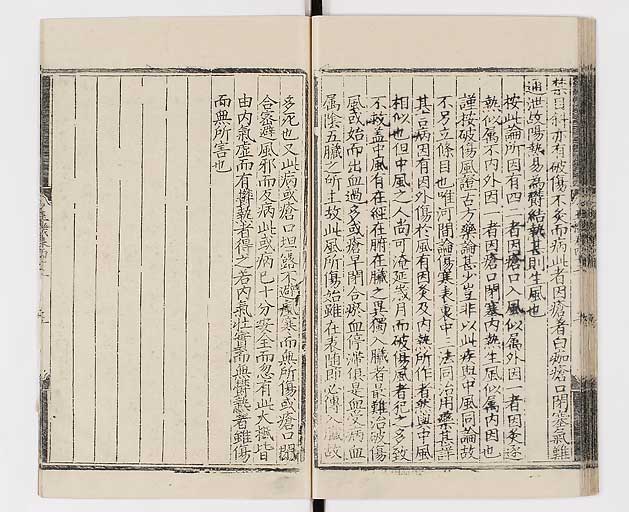 禁目科亦有破傷不灸而病此者因瘡著白痂瘡口閉塞氣難
通泄故陽熱易為欝結熱甚則生風也
按此論所因有四二者因瘡口入風似属外因一者因灸逐
熱似属不内外因一者因瘡口閉塞内熱生風似属内因也
謹按破傷風證古方藥論甚少豈非以此疾與中風同論故
不另立條目也唯河間論傷寒表裏中三法同治用藥甚詳
其言病因有因外傷於風有因灸及内熱所作者然與中風
相似也但中風之人尚可淹延歲月而破傷風者犯之多致
不救盖中風有在經在腑在臓之異獨入臓者最難治破傷
風或始而出血過多或瘡早閉合瘀血停滯俱是血受病血
属陰五臓之所主故此風所傷始雖在表隨即必傳入臓故
多死也又此病或瘡口坦露不避風寒而無所傷或瘡口閉
合密避風邪而及病此或病已十分安全而忽有此大槩皆
由内氣虛而有欝熱者得之若内氣壮實而無欝熱者雖傷
而無所害也